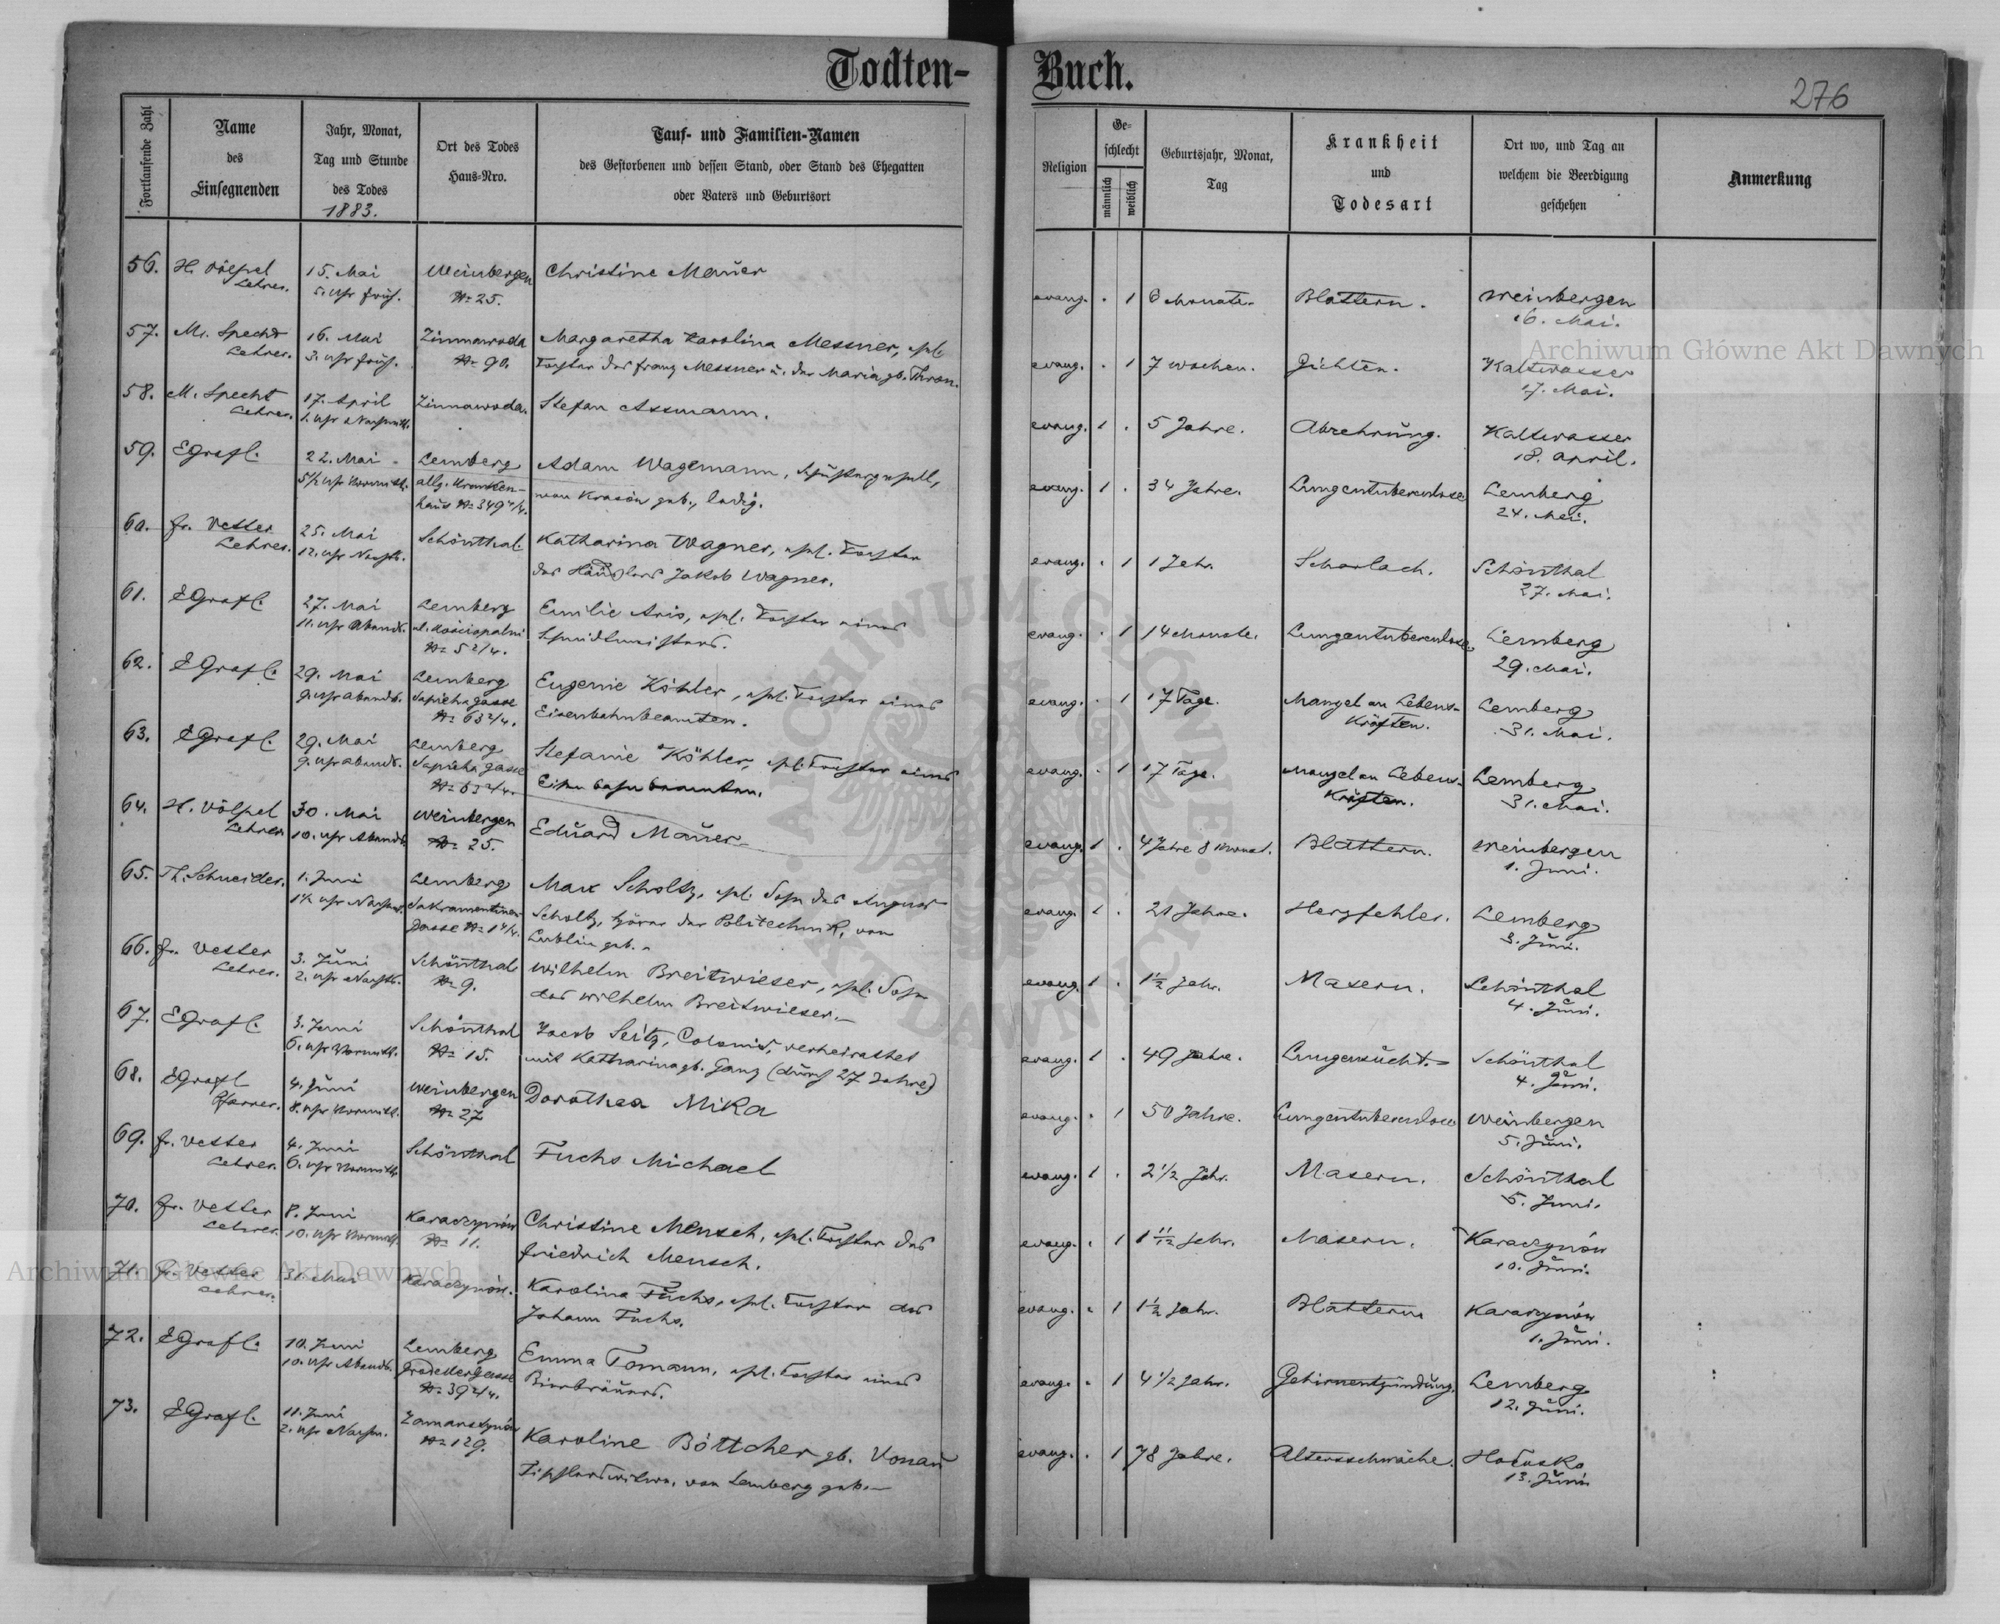 Todten-Buch.
276
Fortlaufende Zahl
Name
des
Einsegnenden
Jahr, Monat,
Tag und Stunde
des Todes
1883.
Ort des Todes
Haus-Nro.
Tauf- und Familien-Namen
des Gestorbenen und dessen Stand, oder Stand des Ehegatten
oder Vaters und Geburtsort
Religion
Ge-
schlecht
männlich
weiblich
Geburtsjahr, Monat,
Tag
Krankheit
und
Todesart
Ort wo, und Tag an
welchem die Beerdigung
geschehen
Anmerkung
56. H. Völpel 15. Mai Weinbergen Christine Mauer
Lehrer. 5. Uhr früh. No 25.
evang. . 1 6 Monate. Blattern. Weinbergen
16. Mai.
57. M. Specht 16. Mai Zimnawoda Margaretha Karolina Messner, ehl.
Lehrer. 3. Uhr früh. No 90. Tochter des Franz Messner u. der Maria gb. Thron.
evang. . 1 7 Wochen. Gichten. Kaltwasser
17. Mai.
58. M. Specht 17. April Zimnawoda. Stefan Assmann.
Lehrer. 1. Uhr Nachmitt.
evang. 1 . 5 Jahre. Abzehrung. Kaltwasser
18. April.
59. EGrafl. 22. Mai Lemberg Adam Wagemann, Schustergesell,
5½ Uhr Vormitt. allg. Kranken- von Krasów geb., ledig.
haus No 349 4/4.
evang. 1 . 34 Jahre. Lungentuberculose Lemberg
24. Mai.
60. Fr. Vetter 25. Mai Schönthal. Katharina Wagner, ehel. Tochter
Lehrer. 12. Uhr Nachts. des Häuslers Jakob Wagner.
evang. . 1 1 Jahr. Scharlach. Schönthal
27. Mai.
61. EGrafl. 27. Mai Lemberg Emilie Aris, ehel. Tochter eines
11. Uhr Abends. Schmidtmeisters.
No 5 2/4.
evang. . 1 14 Monate. Lungentuberculose. Lemberg
29. Mai.
62. EGrafl. 29. Mai Lemberg Eugenie Köhler, ehel. Tochter eines
9. Uhr Abends. Sapieha gasse Eisenbahnbeamten.
No 63 2/4.
evang. . 1 17 Tage. Mangel an Lebens- Lemberg
Kräften. 31. Mai.
63. EGrafl. 29. Mai Lemberg Stefanie Köhler, ehl. Tochter eines
9. Uhr Abends. Sapieha gasse Eisenbahnbeamten.
No 63 2/4.
evang. . 1 17 Tage. Mangel an Lebens- Lemberg
Kräften. 31. Mai.
64. H. Völpel 30. Mai Weinbergen Eduard Mauer
Lehrer 10. Uhr Abends No 25.
evang. 1 . 4 Jahre 8 Monat. Blattern. Weinbergen
1. Juni.
65. Th. Schneider. 1. Juni Lemberg Max Scholtz, ehl. Sohn des August
Sakramentiner Scholtz, Hörer der Politechnik, von
Gasse No 1 4/4. Lublin geb.
evang. 1 . 21 Jahre. Herzfehler. Lemberg
3. Juni.
66. Fr. Vetter 3. Juni Schönthal Wilhelm Breitwieser, ehel. Sohn
Lehrer. 2. Uhr Nachts. No 9. des Wilhelm Breitwieser.
evang. 1 . 1½ Jahr. Masern. Schönthal
4. Juni.
67. EGrafl. 3. Juni Schönthal Jacob Seitz, Colonist, verheirathet
6. Uhr Vormitt. No 15. mit Katharina gb. Ganz (durch 27 Jahre)
evang. 1 . 49 Jahre. Lungensucht. Schönthal
4. Juni.
68. EGrafl 4. Juni Weinbergen Dorothea Mika
Pfarrer. 8. Uhr Vormitt. No 27
evang. . 1 50 Jahre. Lungentuberculose Weinbergen
5. Juni.
69. Fr. Vetter 4. Juni Schönthal Fuchs Michael
Lehrer. 6. Uhr Vormitt.
evang. 1 . 2 1/2 Jahr. Masern. Schönthal
5. Juni.
70. Fr. Vetter 8. Juni Karaczynów Christine Mensch, ehel. Tochter des
Lehrer. 10. Uhr Vormitt. No 11. Friedrich Mensch.
evang. . 1 1 11/12 Jahr. Masern. Karaczynów
10. Juni.
71. Fr. Vetter 31. Mai Karaczynów. Karolina Fuchs, ehel. Tochter des
Lehrer. Johann Fuchs.
evang. . 1 1½ Jahr. Blattern Karaczynów
1. Juni.
72. EGrafl. 10. Juni Lemberg Emma Tomann, ehl. Tochter eines
10. Uhr Abends. Bierbräuers.
No 39 2/4.
evang. . 1 4 1/2 Jahr. Gehirnentzündung. Lemberg
12. Juni.
73. EGrafl. 11. Juni Zamarstynów Karoline Böttcher gb. Vonau
2. Uhr Nachm. No 129. Töpferswitwe, von Lemberg geb.
evang. . 1 78 Jahre. Altersschwäche. Hołosko
13. Juni
Archiwum Główne Akt Dawnych
Archiwum Główne Akt Dawnych
ARCHIWUM GŁÓWNE AKT DAWNYCH